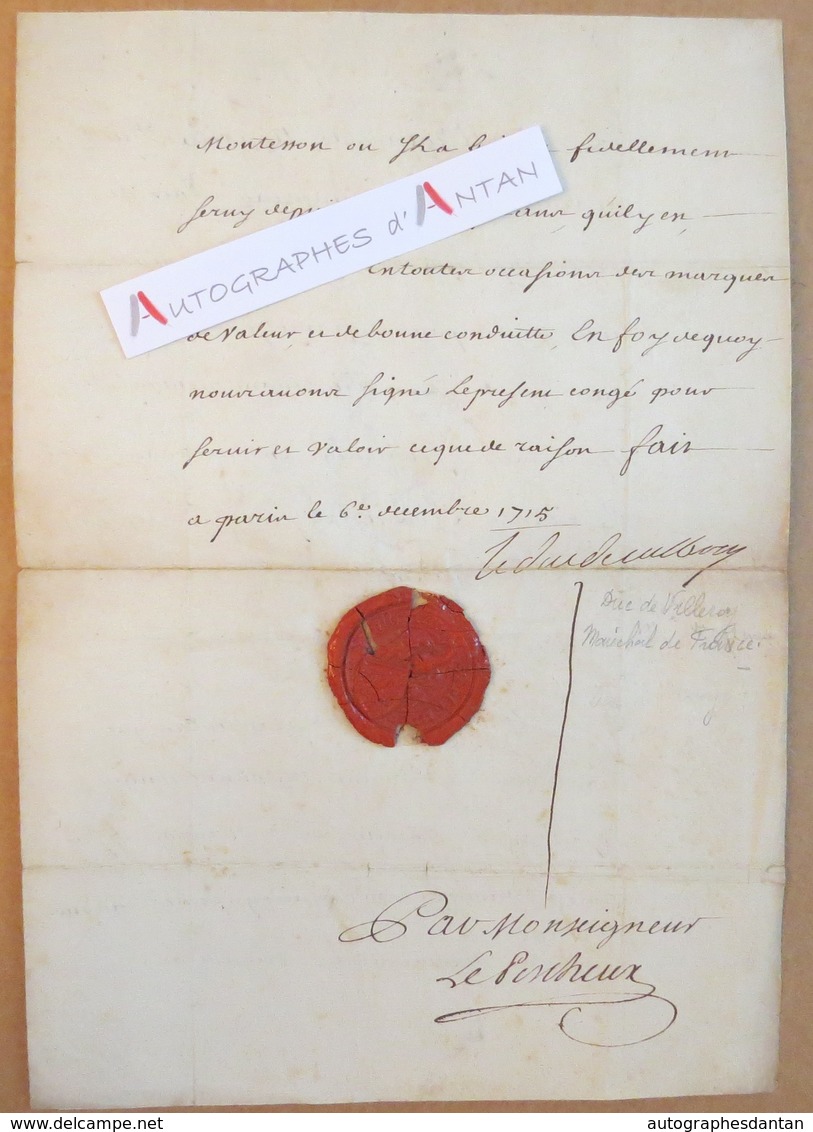 Montesson ou Il a fidellement
servy depuis ans quil y en
AUTOGRAPHES d'ANTAN
en toutes occasions des marques
de Valeur, et de bonne conduitte, En foy de quoy
nous avons signé le present congé pour
servir et Valoir ce que de raison fait
a paris le 6e. decembre 1715
le duc de villeroy
Duc de Villeroy
Maréchal de France.
Par Monseigneur
Le
www.delcampe.net
autographesdantan